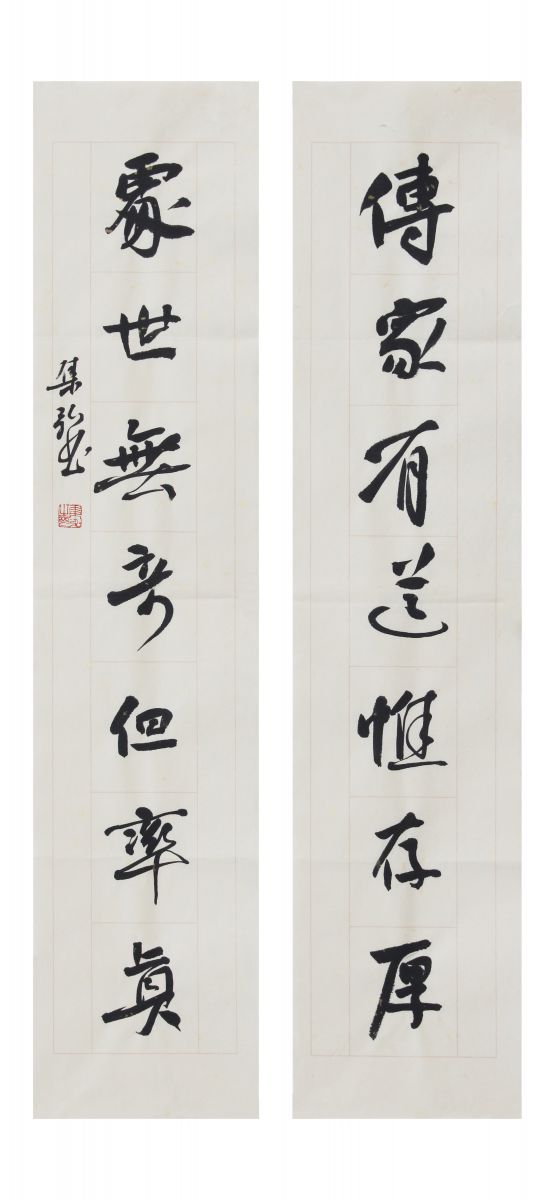 傳家有道惟存厚
處世無奇但率真
集弘書